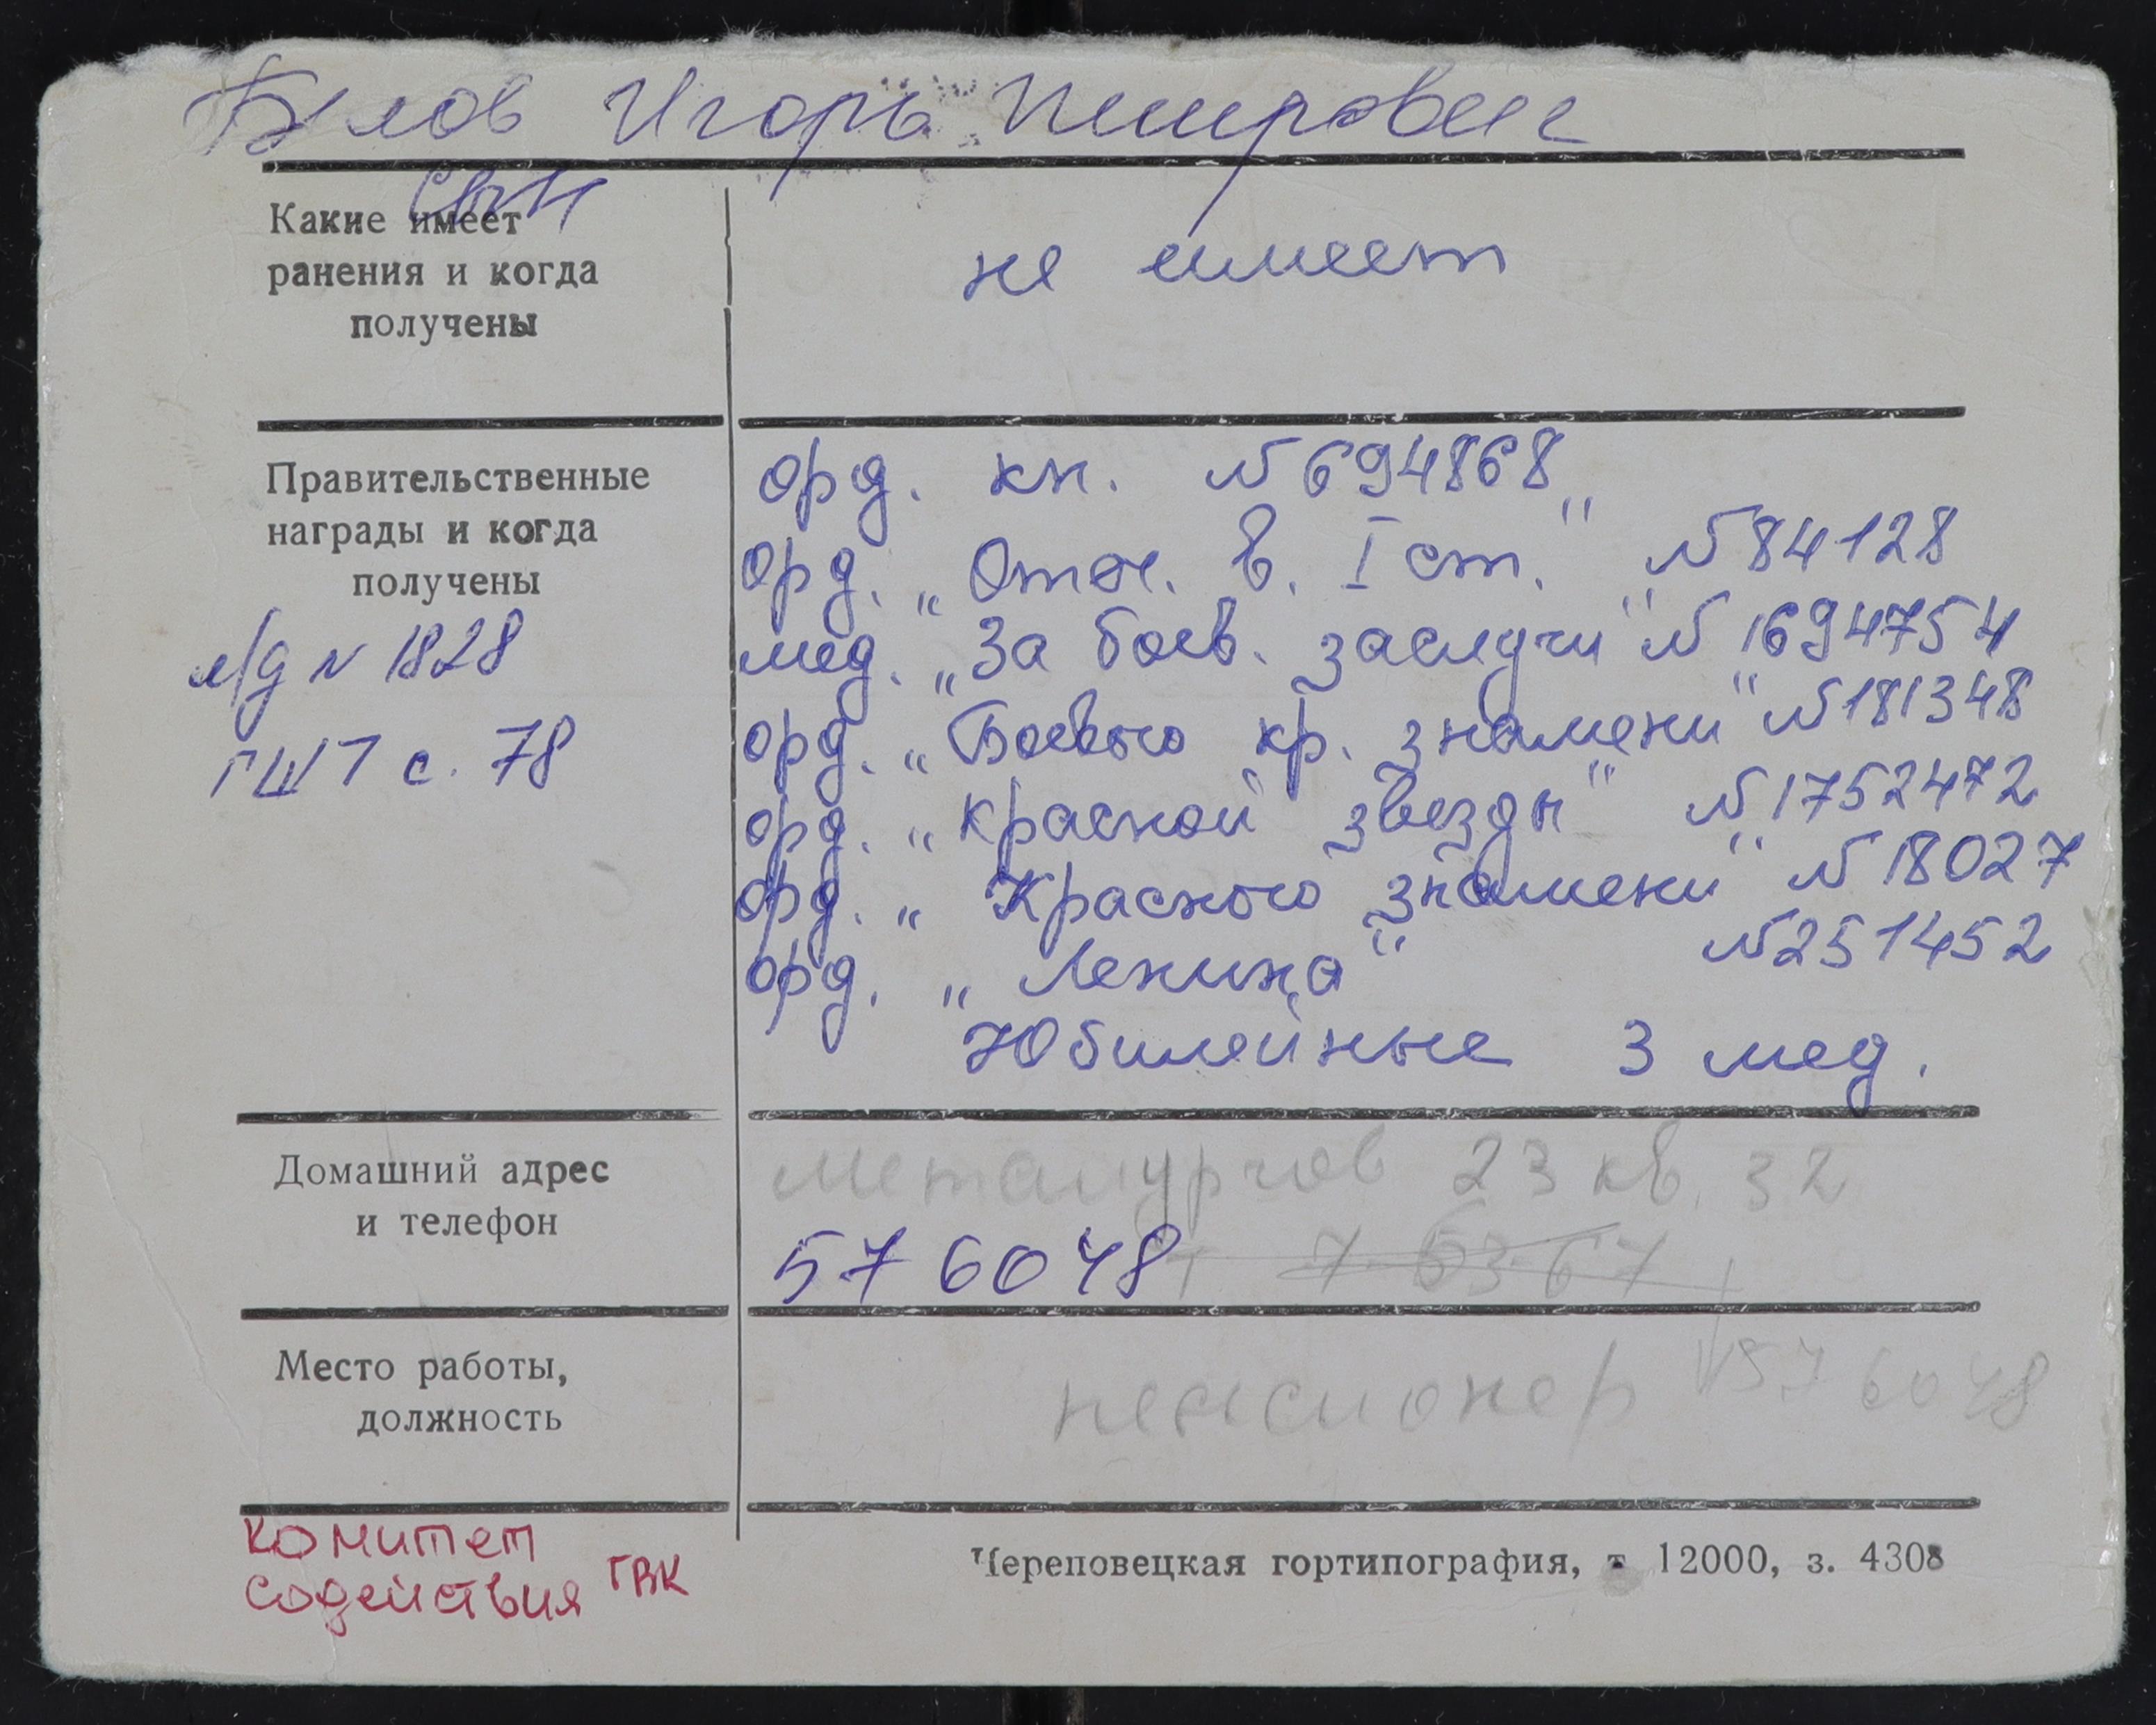 Белов Игорь Петрович
сын
Какие имеет
ранения и когда
получены
не имеет
Правительственные
награды и когда
получены
л/д N 1828
ГШТ с. 78
орд. кр. № 694868
орд. „Отеч. в. I ст." № 84128
мед. „За боев. заслуги" № 1694754
орд. „Боевого кр. знамени" № 181348
орд. „Красной звезды" № 1752472
орд. „Красного знамени" № 18027
орд. „Ленина" № 251452
Юбилейные 3 мед.
Домашний адрес
и телефон
Металургов 23 кв. 32
576048 т 7-63-67
Место работы,
должность
пенсионер 576048
Комитет
содействия ГВК
Череповецкая гортипография, т 12000, з. 4308